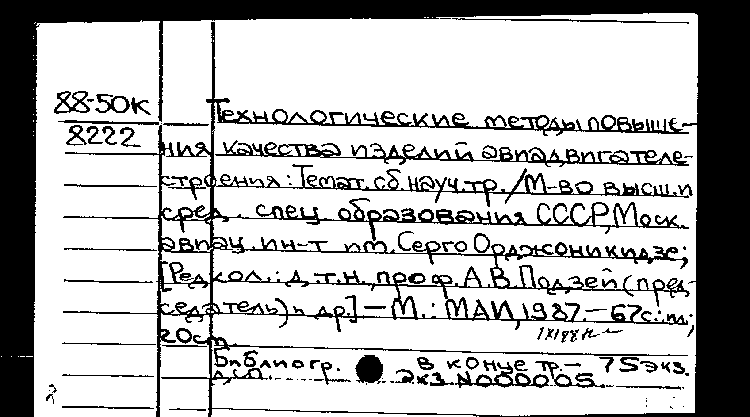 88-50К
8222
Технологические методы повыше-
ния качества изделий авиадвигателе-
строения: Темат. сб. науч. тр. / М-во высш. и
сред. спец. образования СССР, Моск.
авиац. ин-т им. Серго Орджоникидзе;
[Редкол.: д. т. н., проф. А. В. Подзей (пред-
седатель) и др.] — М.: МАИ, 1987. — 67с.: ил;
20см
Библиогр. в конце тр. — 75экз.
Д.С.П. Экз. N000005.